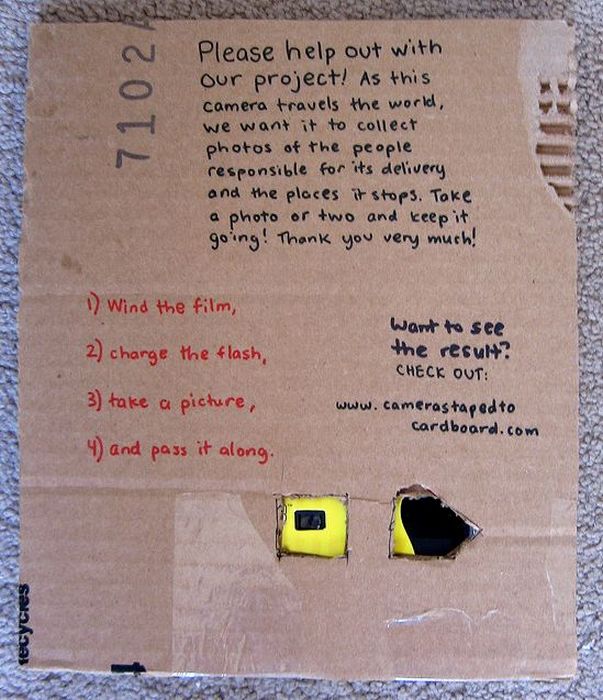 7102
Please help out with
our project! As this
camera travels the world,
we want it to collect
photos of the people
responsible for its delivery
and the places it stops. Take
a photo or two and keep it
going! Thank you very much!
1) Wind the film,
2) charge the flash,
3) take a picture,
4) and pass it along.
Want to see
the result?
CHECK OUT:
www.camerastapedto
cardboard.com
recycles